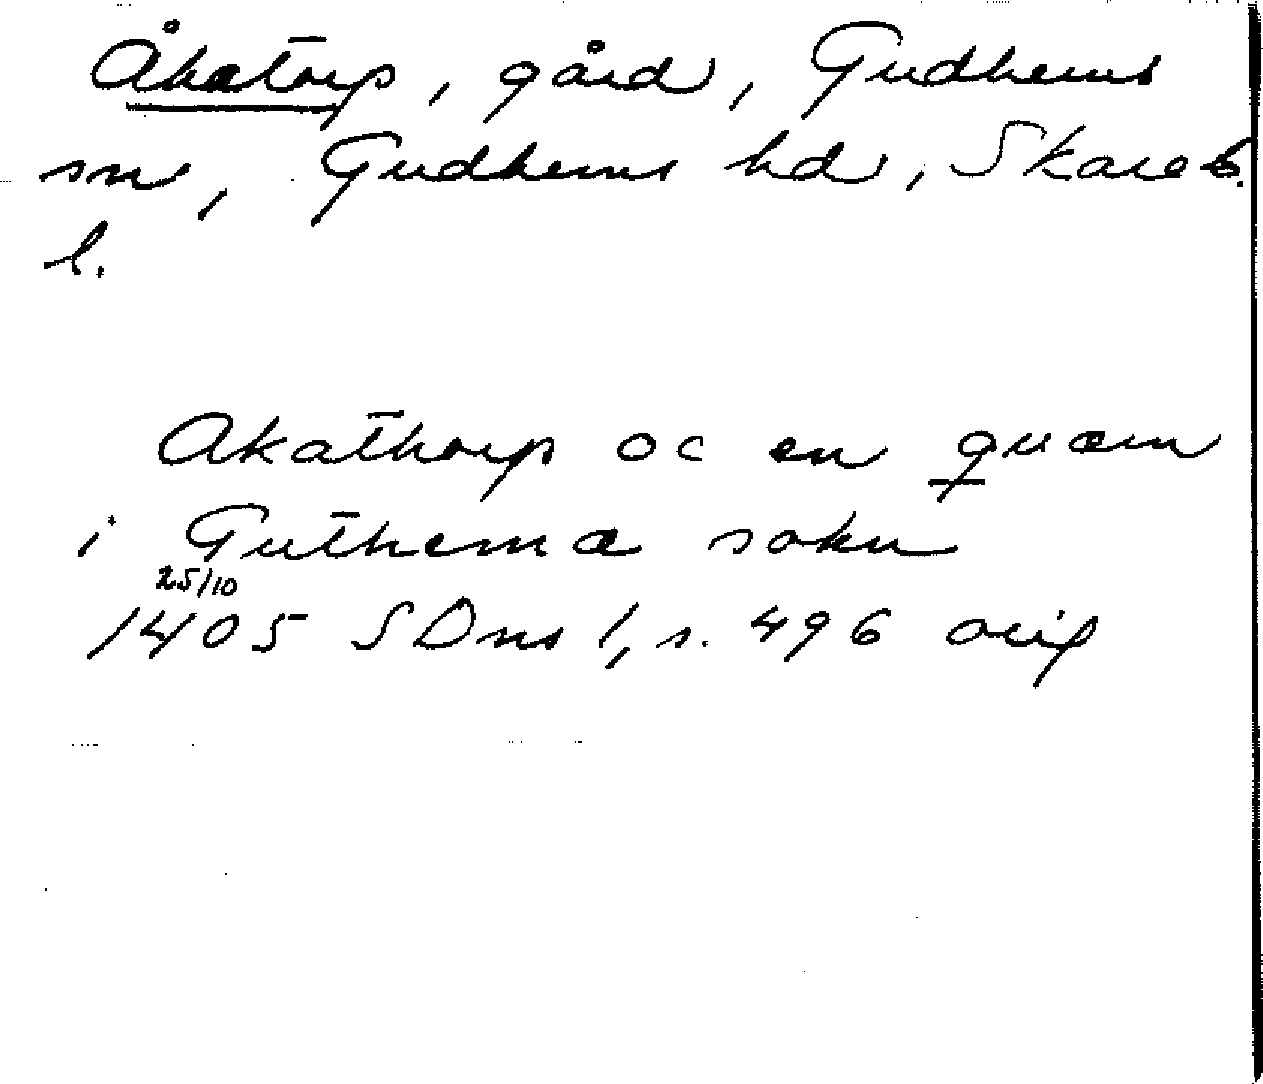 Åkatorp, gård, Gudhems
sn, Gudhems hd, Skarab.
l.
Akathorp oc en quærn
i Guthema sokn
25/10
1405 SDns 1, s. 496 orig